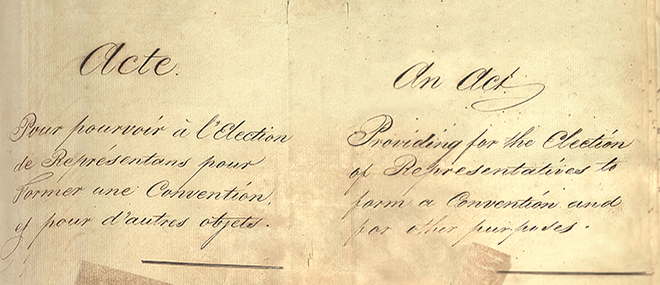 Acte.
Pour pourvoir à l'Election
de Représentans pour
Former une Convention,
et pour d'autres objets.
An Act
Providing for the Election
of Representatives to
form a Convention and
for other purposes.